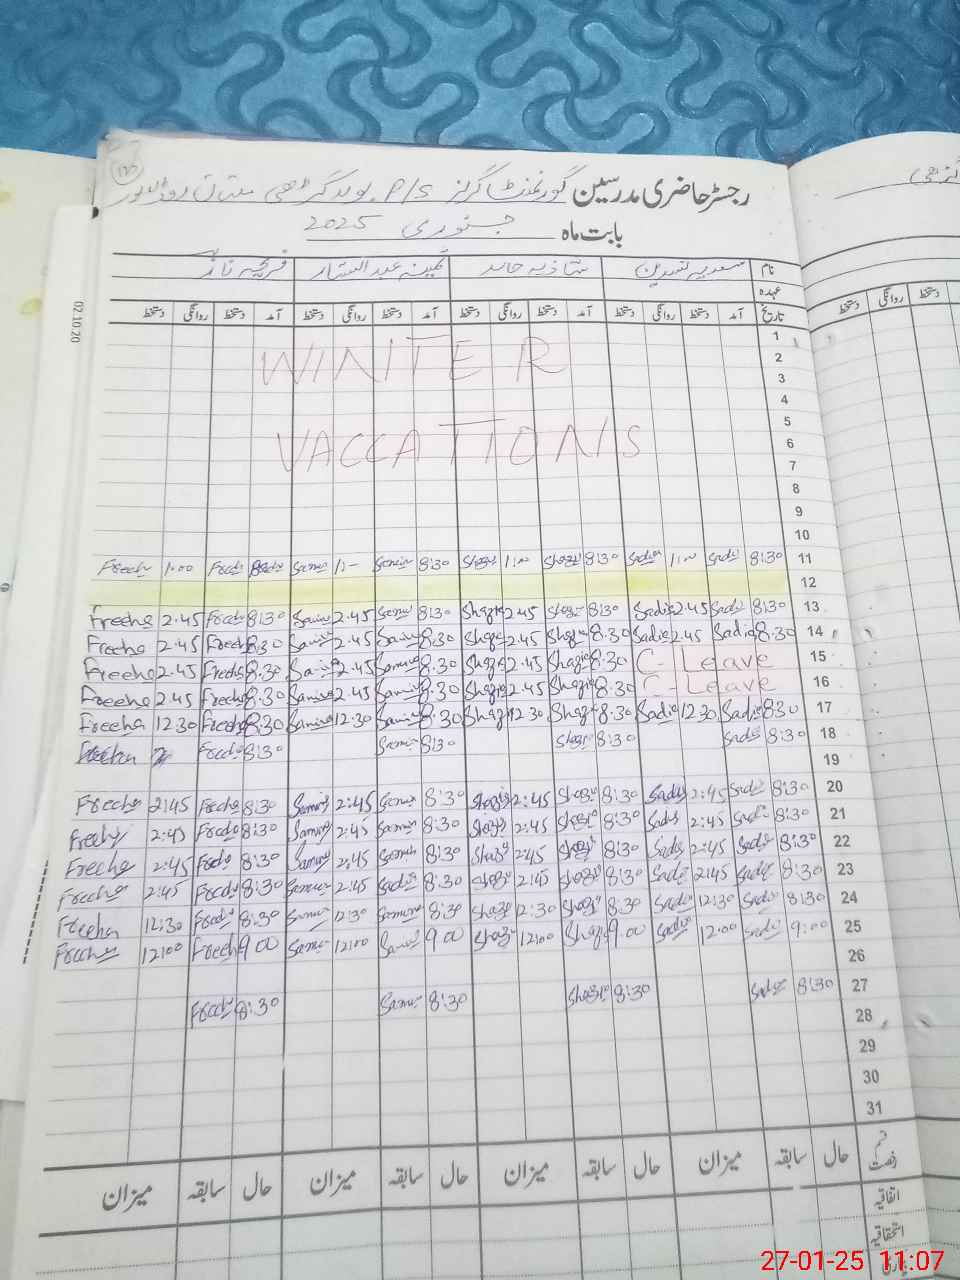 رجسٹر حاضری مدرسین گورنمنٹ گرلز P/S
بابت ماہ جنوری 2025
نام سعدیہ نسرین شاذیہ حامد ثمینہ عبدالستار فریحہ ناز
عہدہ
تاریخ آمد دستخط روانگی دستخط آمد دستخط روانگی دستخط آمد دستخط روانگی دستخط آمد دستخط روانگی دستخط
1
2
WINTER
3
4
5
6
VACCATIONS
7
8
9
10
Freeha 1:00 Samin 1:- Samin 8:30 Shazi 1:00 Shazi 8:30 Sadia 1:00 Sadi 8:30 11
12
Freeha 2.45 Freeha 8:30 Samin 2.45 Samin 8:30 Shazia 2.45 Shazi 8:30 Sadia 2.45 Sadi 8:30 13
Freeha 2.45 Freeha 8.30 Samin 2.45 Samin 8.30 Shazia 2.45 Shazia 8.30 Sadia 2.45 Sadia 8.30 14
Freeha 2.45 Freeha 8.30 Samin 2.45 Samin 8.30 Shazia 2.45 Shazia 8.30 C- Leave 15
Freeha 2.45 Freeha 8.30 Samin 2.45 Samin 8.30 Shazia 2.45 Shazia 8.30 C- Leave 16
Freeha 12.30 Freeha 8.30 Samin 12.30 Samin 8.30 Shazi 12.30 Shazi 8.30 Sadia 12.30 Sadia 8.30 17
Freeha Freeha 8:30 Samin 8:30 Shazi 8:30 Sadia 8:30 18
19
Freeha 2:45 Freeha 8:30 Samin 2:45 Samin 8:30 Shazia 2:45 Shazi 8:30 Sadi 2:45 Sadi 8:30 20
Freeha 2:45 Freeha 8:30 Samin 2:45 Samin 8:30 Shazi 2:45 Shazi 8:30 Sadi 2:45 Sadi 8:30 21
Freeha 2:45 Freeha 8:30 Samin 2:45 Samin 8:30 Shazi 2:45 Shazi 8:30 Sadi 2:45 Sadi 8:30 22
Freeha 2:45 Freeha 8:30 Samin 2:45 8:30 Shazi 2:45 Shazi 8:30 Sadi 2:45 Sadi 8:30 23
Freeha 12:30 Freeha 8:30 Samin 12:30 Samin 8:30 Shazi 12:30 Shazi 8:30 Sadi 12:30 Sadi 8:30 24
Freeha 12:00 Freeha 9 00 Samin 12:00 Samin 9 00 Shazi 12:00 Shazia 9 00 Sadi 12:00 Sadi 9:00 25
26
Freeha 8:30 Samin 8:30 Shazi 8:30 Sadi 8:30 27
28
29
30
31
قسم رخصت حال سابقہ میزان حال سابقہ میزان حال سابقہ میزان حال سابقہ میزان
اتفاقیہ
استحقاقیہ
02.10.20
دستخط روانگی دستخط
27-01-25 11:07